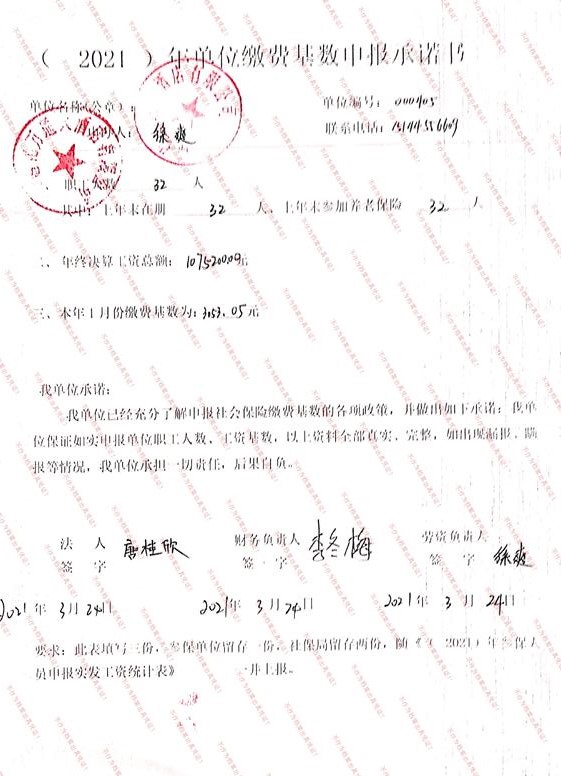 （ 2021 ）年单位缴费基数申报承诺书
单位名称(公章)： 单位编号：000405
人：徐爽 联系电话：15144556609
职工人数 32 人
其中：上年末在册 32 人、上年末参加养老保险 32 人
二、年终决算工资总额：1075200.09元
三、本年1月份缴费基数为：3153.05元
我单位承诺：
我单位已经充分了解申报社会保险缴费基数的各项政策，并做出如下承诺：我单
位保证如实申报单位职工人数、工资基数，以上资料全部真实、完整，如出现漏报、瞒
报等情况，我单位承担一切责任，后果自负。
法 人 唐桂欣 财务负责人 李冬梅 劳资负责人
签 字 签 字 签 字 徐爽
2021年 3月24日 2021年 3月24日 2021年 3月24日
要求：此表填写三份，参保单位留存一份，社保局留存两份，随《（ 2021）年参保人
员申报实发工资统计表》 一并上报。